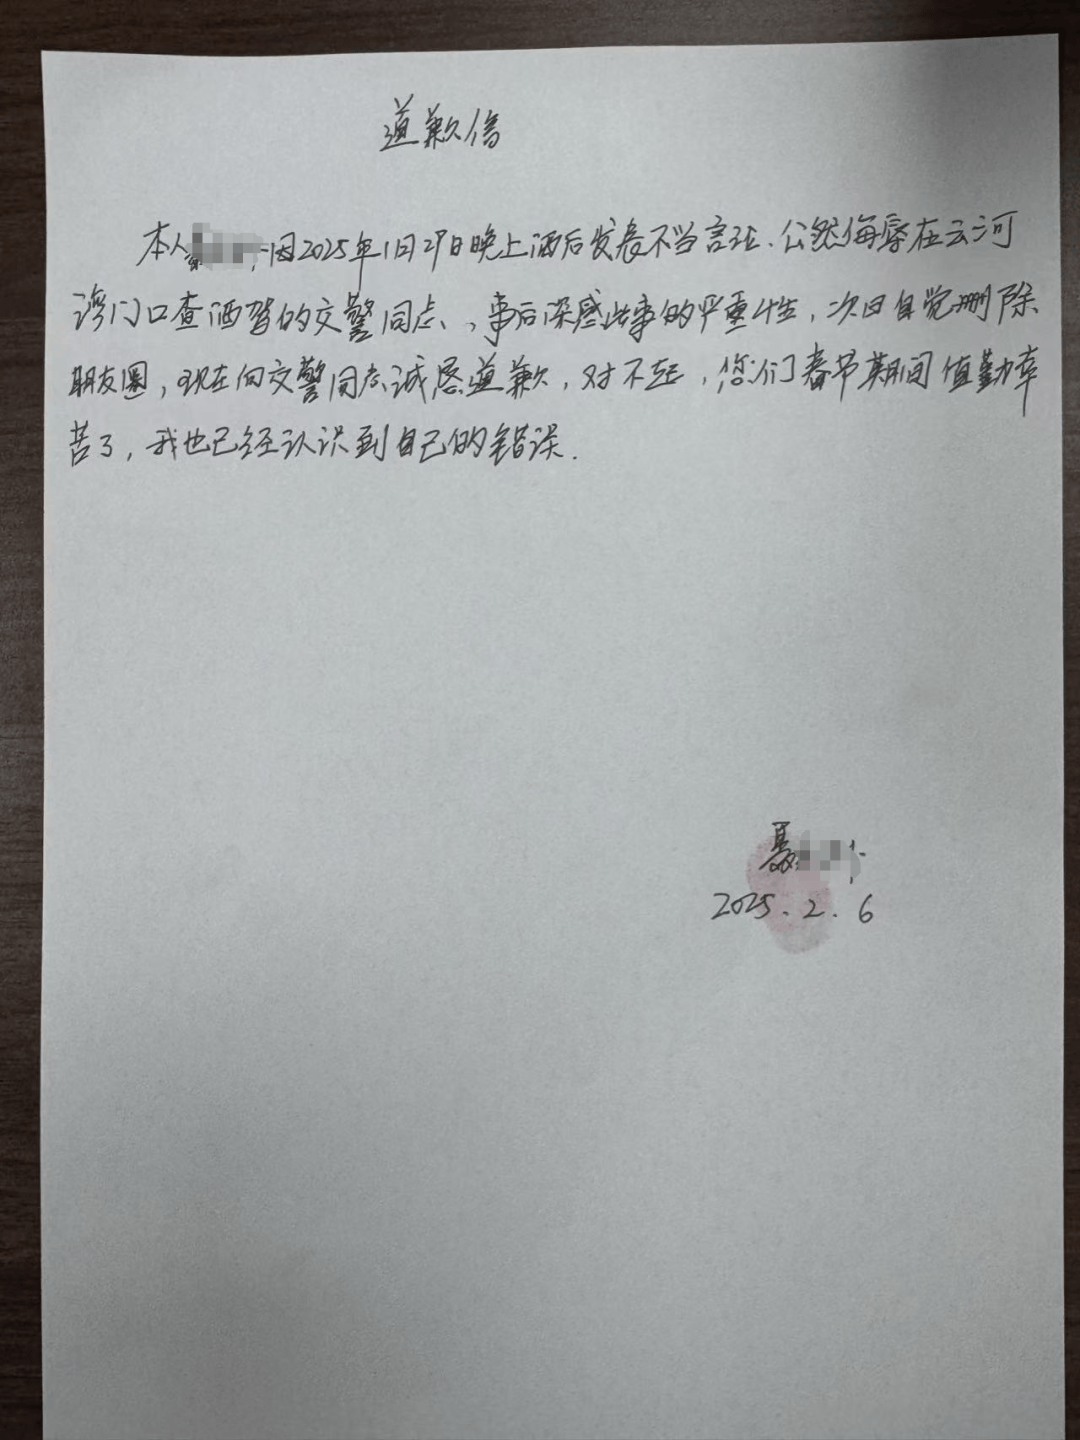 道歉信
本人因2025年1月29日晚上酒后发表不当言论、公然侮辱在云河
湾门口查酒驾的交警同志、,事后深感此事的严重性,次日自觉删除
朋友圈,现在向交警同志诚恳道歉,对不起,您们春节期间值勤辛
苦了,我也已经认识到自己的错误.
聂
2025.2.6